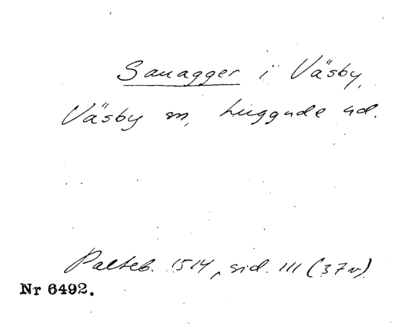 Sauagger i Väsby,
Väsby sn, Luggude hd.
Palteb. 1514, sid. 111 (37v)
Nr 6492.